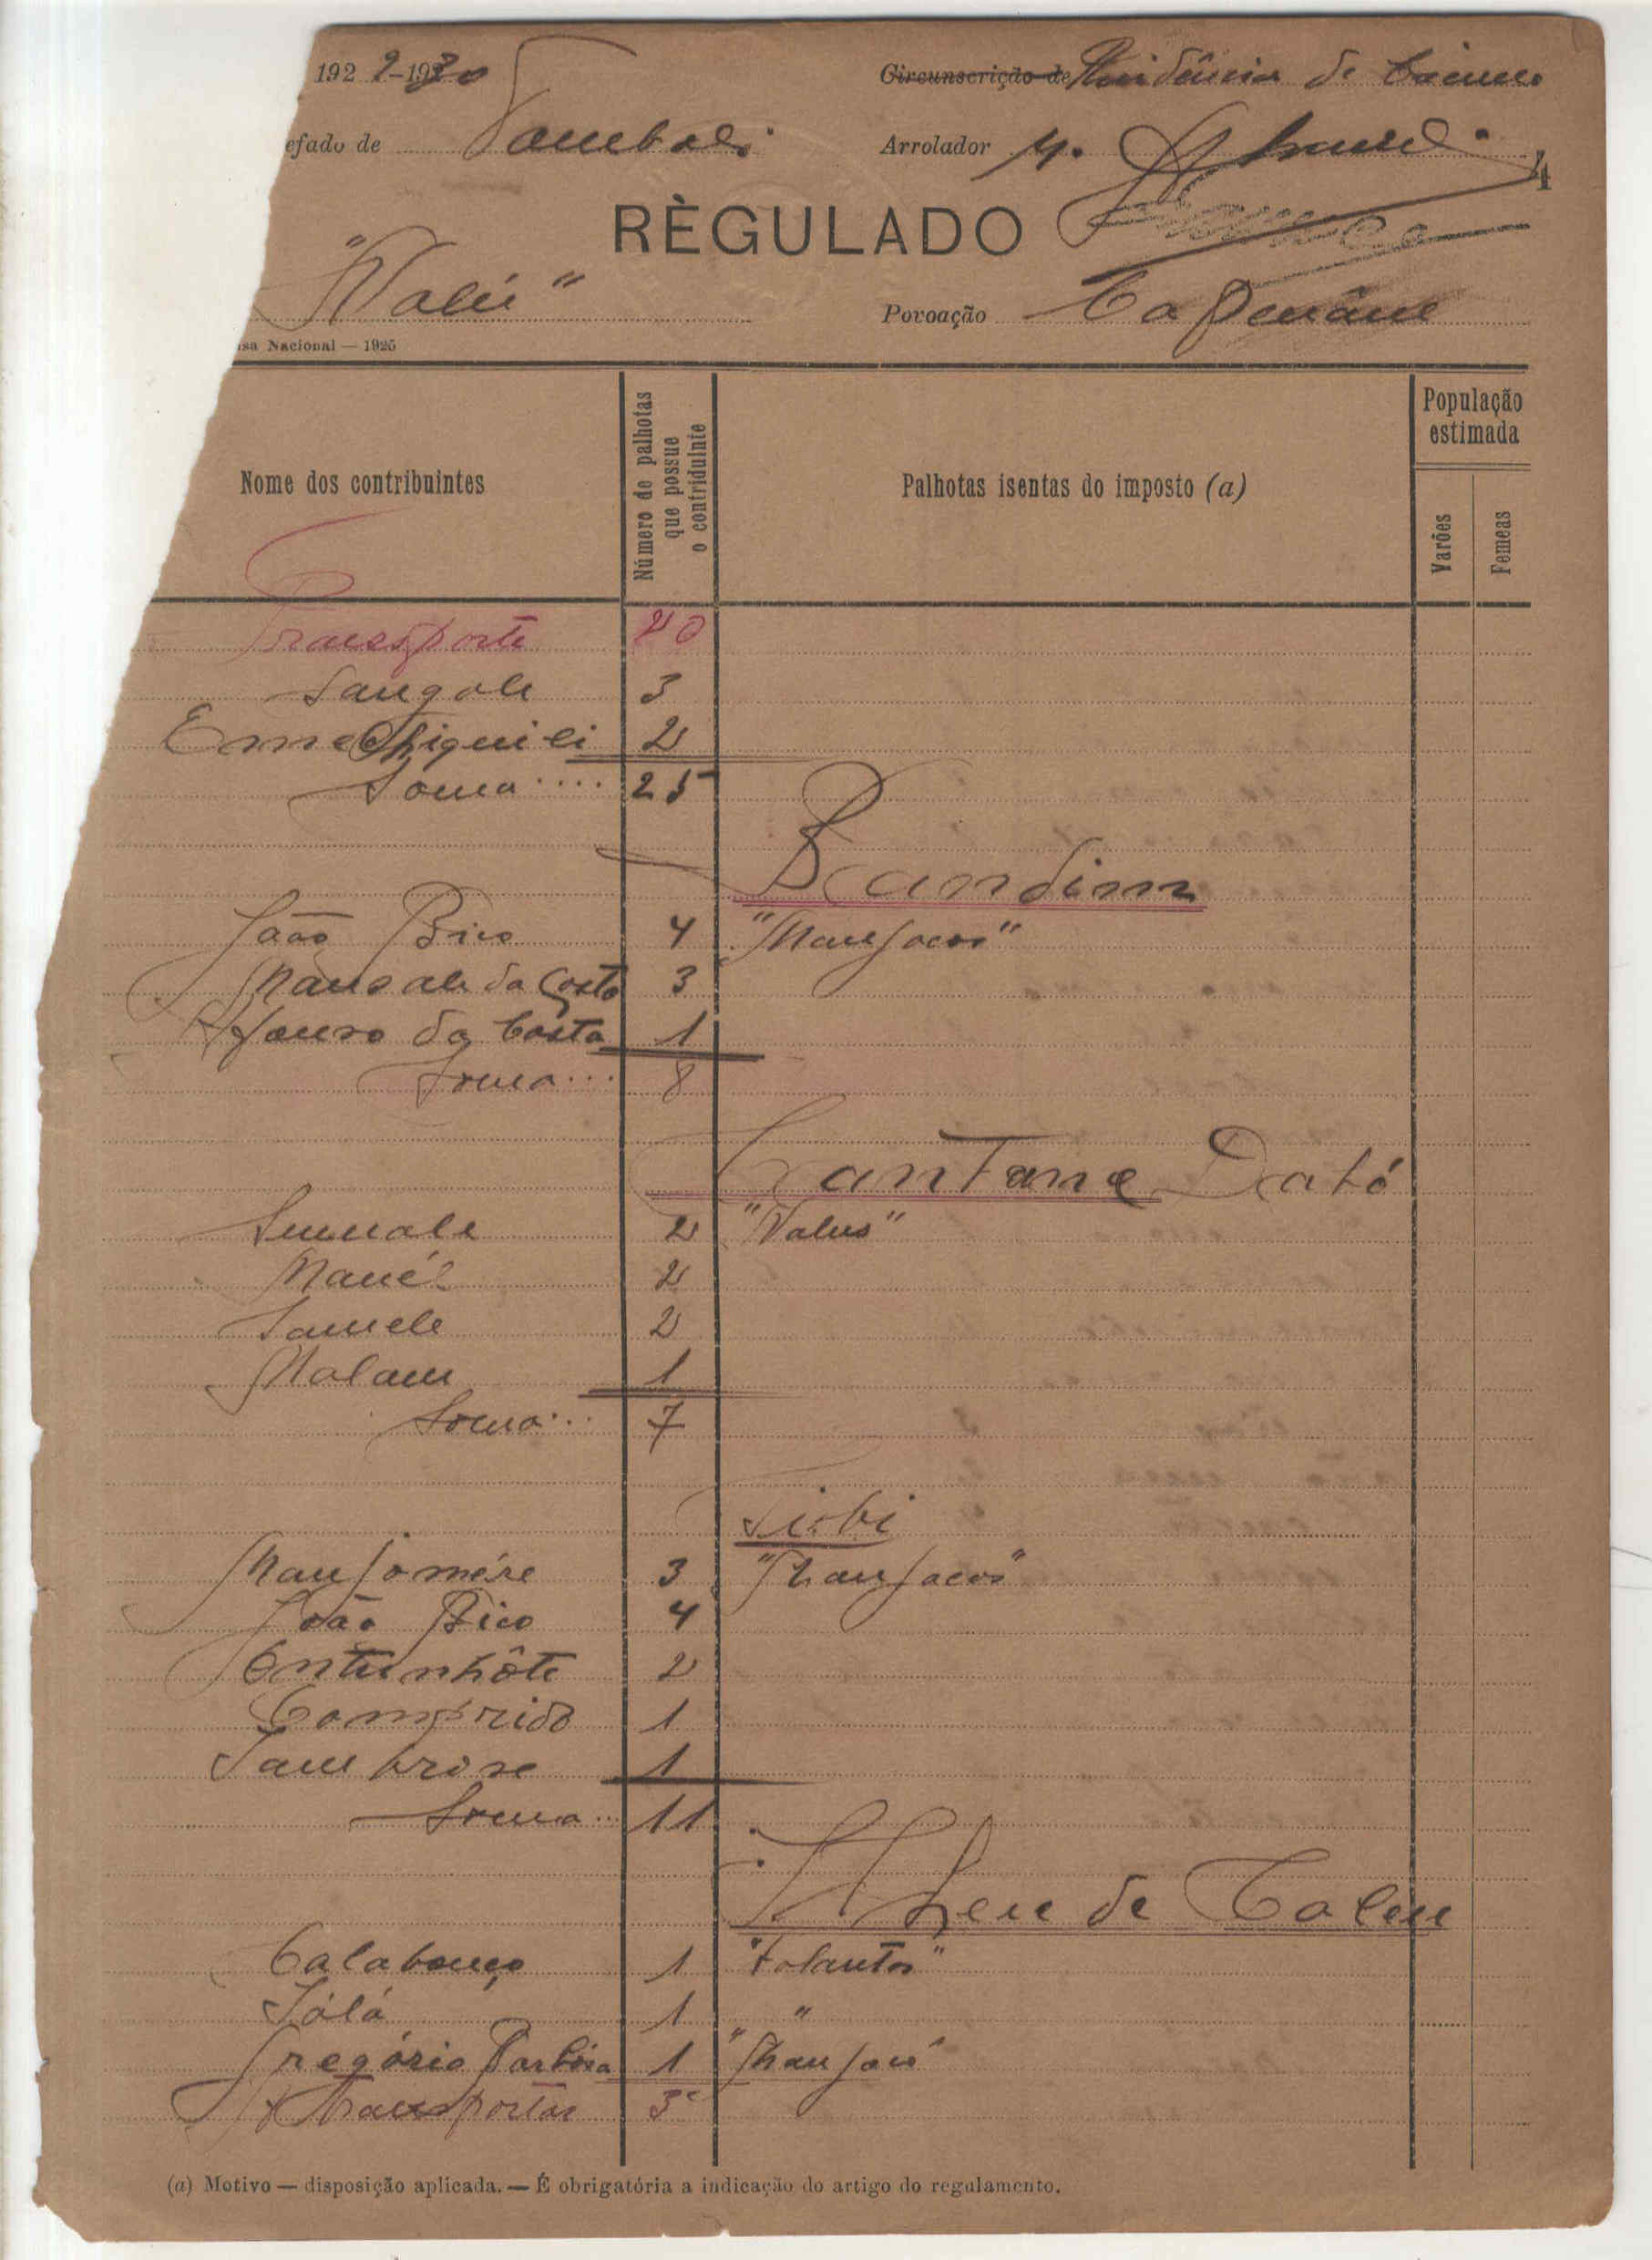 1929-1930
Circunscrição de Residência de Cacine
efado de Tombali
Arrolador
4
RÈGULADO
"Nalú"
Povoação Cafenâne
sa Nacional — 1925
Nome dos contribuintes
Número de palhotas que possue o contriduinte
Palhotas isentas do imposto (a)
População estimada
Varões
Femeas
Transporte 20
Sangale 3
2
Soma.... 25
Bandim
João Bico 4 "Manjacos"
Mansale da Costa 3
Afonso da Costa 1
Soma... 8
Cantane Dató
2 "Nalus"
Mané 2
Samele 2
Malam 1
Soma... 7
"Manjacos"
Manjomére 3
João Bico 4
Ontunhôte 2
Comprido 1
Tambrose 1
Soma... 11
de
Calabouço 1
Sálá 1 "
Gregório Barbósa 1 "Manjaco"
A Transportar 3
(a) Motivo — disposição aplicada. — É obrigatória a indicação do artigo do regulamento.